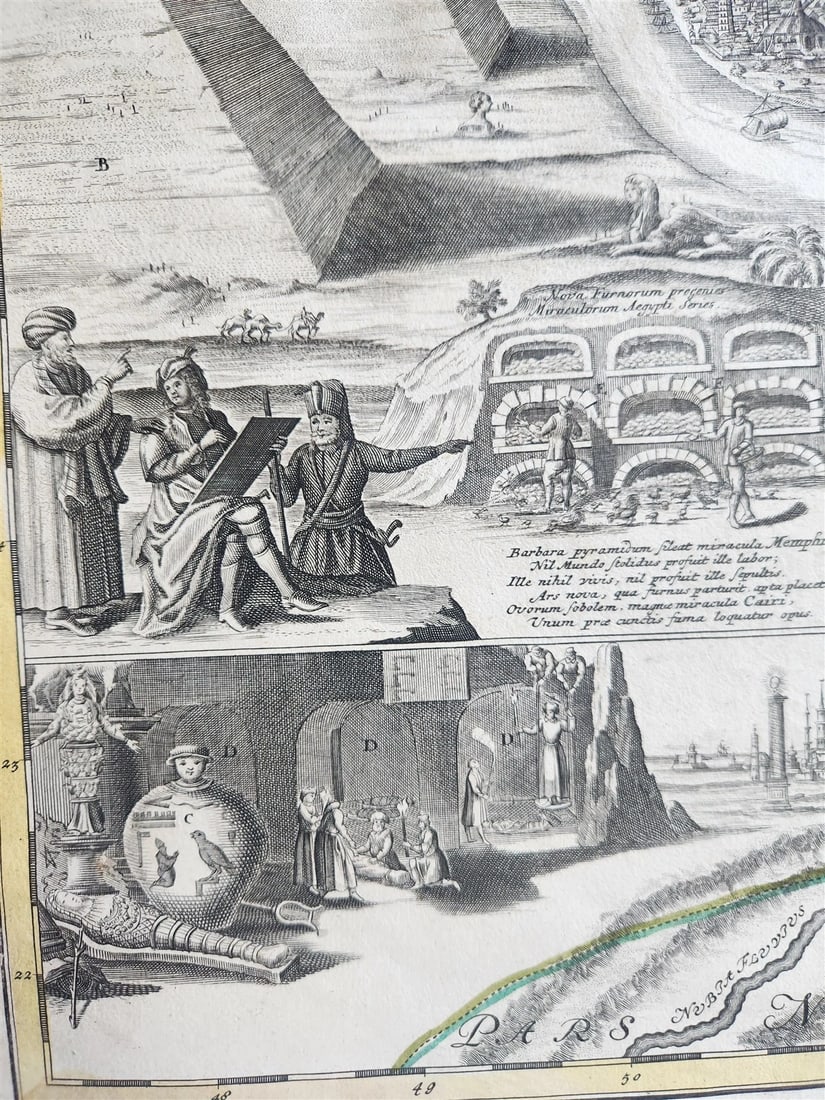 B
Nova Furnorum progenies
Miraculorum Aegypti Series.
E
E
Barbara pyramidum sileat miracula Memphis
Nil Mundo stolidus profuit ille labor;
Ille nihil vivis, nil profuit ille sepultis.
Ars nova, qua furnus parturit, apta placet
Ovorum sobolem, magnæ miracula Cairi,
Unum præ cunctis fama loquatur opus.
D
D
D
C
23
22
NUBIÆ FLUVIUS
PARS N
48
49
50